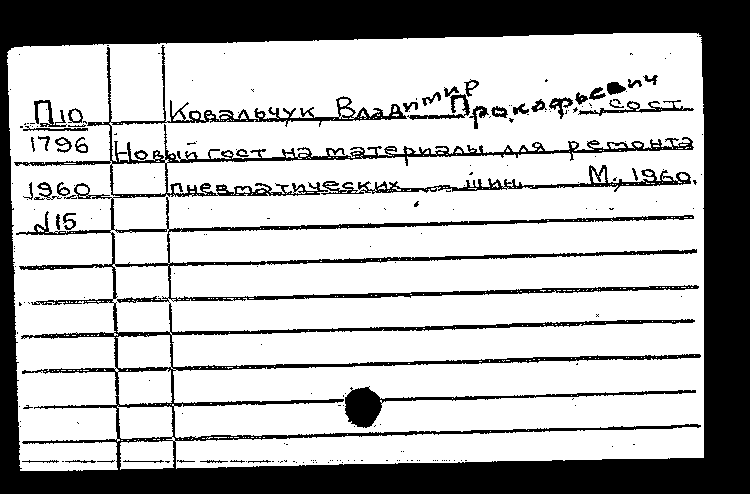 П10 Ковальчук, Владимир Прокофьевич, сост.
1796 Новый гост на материалы для ремонта
1960 пневматических шин. М., 1960.
№15